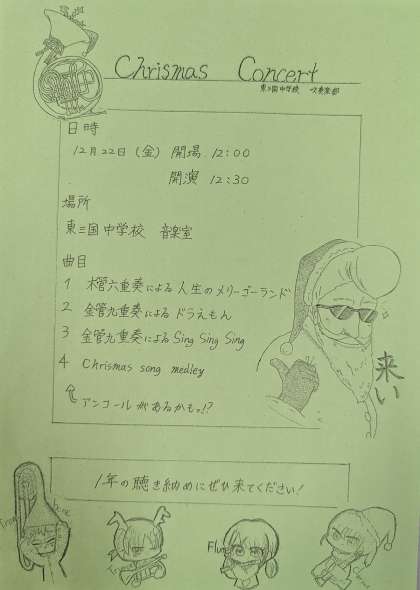 Chrismas Concert
東三国中学校 吹奏楽部
日時
12月22日(金) 開場 12:00
開演 12:30
場所
東三国中学校 音楽室
曲目
1 木管六重奏による人生のメリーゴーランド
2 金管九重奏によるドラえもん
3 金管九重奏による Sing Sing Sing
4 Chrismas song medley
アンコールがあるかもッ!?
来い
1年の聴き納めにぜひ来てください!
Flute